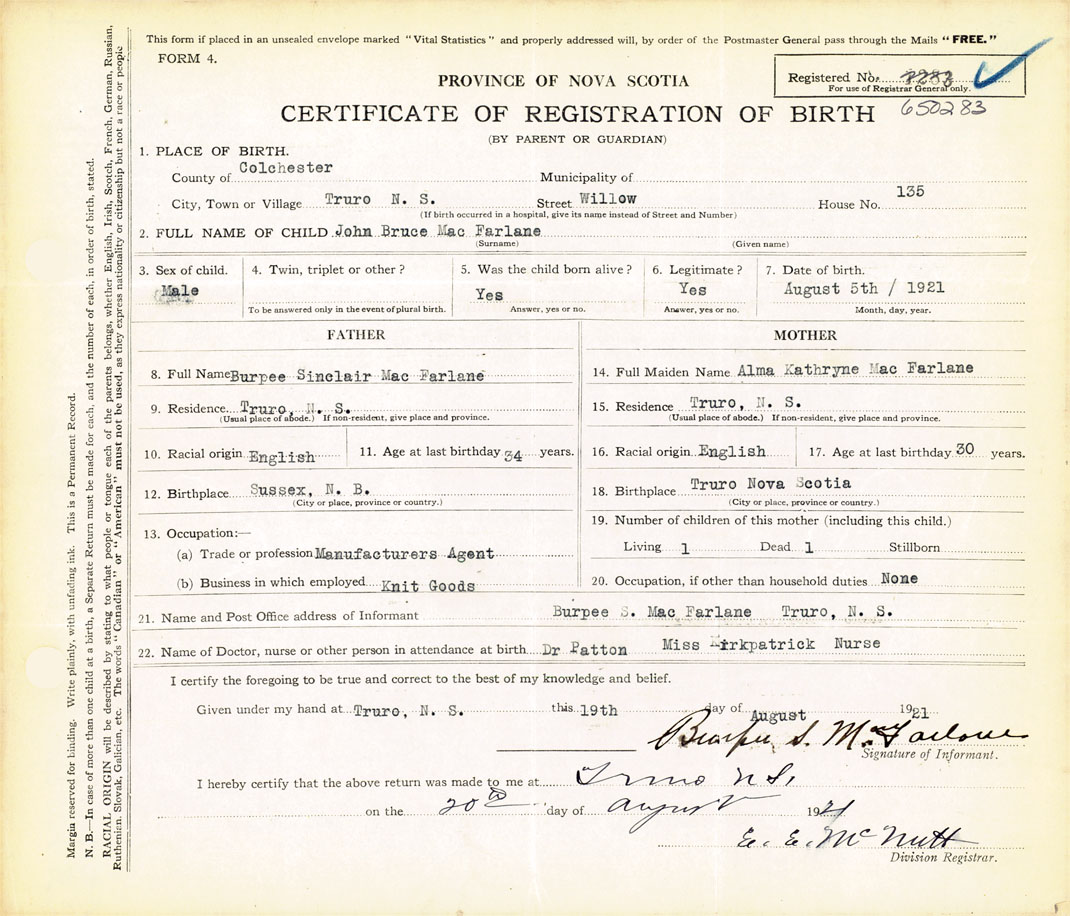 This form if placed in an unsealed envelope marked "Vital Statistics" and properly addressed will, by order of the Postmaster General pass through the Mails "FREE."
FORM 4.
Registered No. 3283
For use of Registrar General only.
650283
PROVINCE OF NOVA SCOTIA
CERTIFICATE OF REGISTRATION OF BIRTH
(BY PARENT OR GUARDIAN)
1. PLACE OF BIRTH.
County of Colchester Municipality of
City, Town or Village Truro N. S. Street Willow House No. 135
(If birth occurred in a hospital, give its name instead of Street and Number)
2. FULL NAME OF CHILD John Bruce Mac Farlane
(Surname) (Given name)
3. Sex of child. Male
4. Twin, triplet or other?
To be answered only in the event of plural birth.
5. Was the child born alive?
Yes
Answer, yes or no.
6. Legitimate?
Yes
Answer, yes or no.
7. Date of birth.
August 5th / 1921
Month, day, year.
FATHER
8. Full Name Burpee Sinclair Mac Farlane
9. Residence Truro, N. S.
(Usual place of abode.) If non-resident, give place and province.
10. Racial origin English 11. Age at last birthday 34 years.
12. Birthplace Sussex, N. B.
(City or place, province or country.)
13. Occupation:—
(a) Trade or profession Manufacturers Agent
(b) Business in which employed Knit Goods
MOTHER
14. Full Maiden Name Alma Kathryne Mac Farlane
15. Residence Truro, N. S.
(Usual place of abode.) If non-resident, give place and province.
16. Racial origin English 17. Age at last birthday 30 years.
18. Birthplace Truro Nova Scotia
(City or place, province or country.)
19. Number of children of this mother (including this child.)
Living 1 Dead 1 Stillborn
20. Occupation, if other than household duties None
21. Name and Post Office address of Informant Burpee S. Mac Farlane Truro, N. S.
22. Name of Doctor, nurse or other person in attendance at birth Dr Patton Miss Kirkpatrick Nurse
I certify the foregoing to be true and correct to the best of my knowledge and belief.
Given under my hand at Truro, N. S. this 19th day of August 1921
Burpee S. MacFarlane
Signature of Informant.
I hereby certify that the above return was made to me at Truro N.S.
on the 20th day of August 1921
E. E. McNutt
Division Registrar.
Margin reserved for binding. Write plainly, with unfading ink. This is a Permanent Record.
N. B.—In case of more than one child at a birth, a Separate Return must be made for each, and the number of each, in order of birth, stated.
RACIAL ORIGIN will be described by stating to what people or tongue each of the parents belongs, whether English, Irish, Scotch, French, German, Russian,
Ruthenian, Slovak, Galician, etc. The words "Canadian" or "American" must not be used, as they express nationality or citizenship but not a race or people